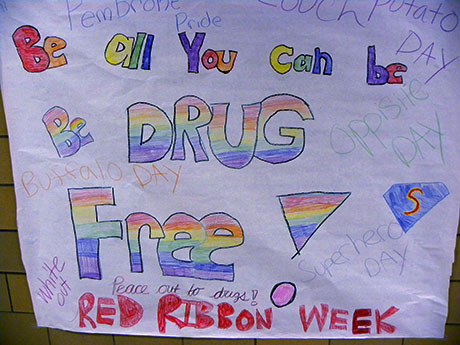 Pembroke Pride
Couch Potato DAY
Be all You Can be
Be DRUG
Opposite DAY
Buffalo DAY
Free
S
Superhero DAY
White out
Peace out to drugs!
RED RIBBON WEEK